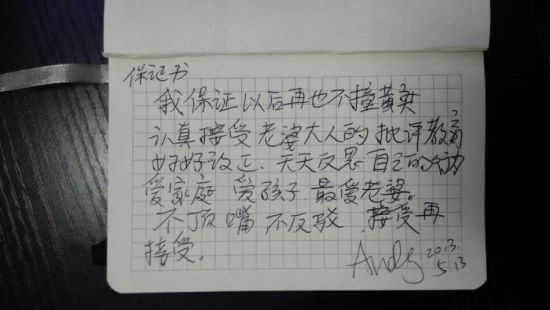 保证书
我保证以后再也不撞黄灯
认真接受老婆大人的批评教育
好好改正、天天反思自己的行为
爱家庭 爱孩子 最爱老婆。
不顶嘴 不反驳 接受再
接受。
Andy 2013.
5.13